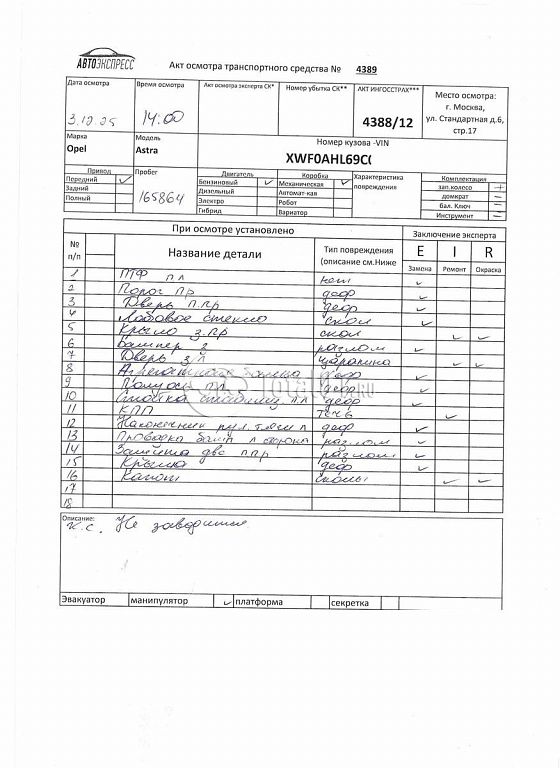 АВТОЭКСПРЕСС
Акт осмотра транспортного средства № 4389
Дата осмотра Время осмотра Акт осмотра эксперта СК* Номер убытка СК** АКТ ИНГОССТРАХ*** Место осмотра:
г. Москва,
ул. Стандартная д.6,
стр.17
3.12.25 14:00 4388/12
Марка Модель Номер кузова -VIN
Opel Astra XWF0AHL69C(
Привод Пробег Двигатель Коробка Характеристика повреждения Комплектация
Передний ✓ 165864 Бензиновый ✓ Механическая ✓ зап.колесо +
Задний Дизельный Автомат-кая домкрат -
Полный Электро Робот бал. Ключ -
Гибрид Вариатор Инструмент -
При осмотре установлено Заключение эксперта
№ п/п Название детали Тип повреждения (описание см.Ниже E I R
Замена Ремонт Окраска
1 ПТФ п л нет ✓
2 Порог пр деф ✓
3 Дверь п.пр деф ✓
4 Лобовое стекло скол ✓
5 Крыло з.пр скол ✓ ✓
6 Бампер з разлом ✓
7 Дверь з л царапина ✓ ✓
8 балка деф ✓
9 Полуось п л деф ✓
10 Стойка стабилиз. п л деф ✓
11 КПП течь ✓
12 Наконечник рул тяги л деф ✓
13 Проводка л разлом ✓
14 двс п пр разлом ✓
15 Крышка деф ✓
16 Капот сколы ✓ ✓
17
18
TotalCar.RU
Описание:
К.с. Не заводится
Эвакуатор манипулятор ✓ платформа секретка